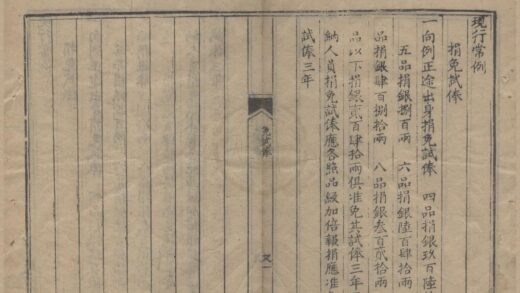 現行常例
捐免試俸
一向例正途出身捐免試俸 四品捐銀玖百陸
五品捐銀捌百兩 六品捐銀陸百肆拾兩
品捐銀肆百捌拾兩 八品捐銀叁百貳拾兩
品以下捐銀貳百肆拾兩俱准免其試俸三年
納人員捐免試俸應各照品級加倍報捐應准
試俸三年
免試俸